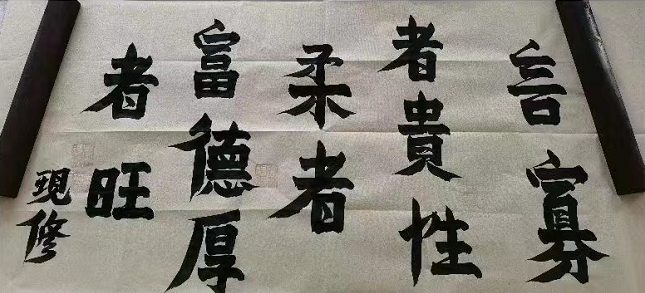 言寡
者貴性
柔者
富德厚
者旺
現修